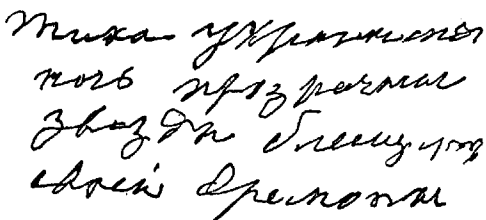 тиха украинская
ночь прозрачны
звезды блещут
своей дремоты